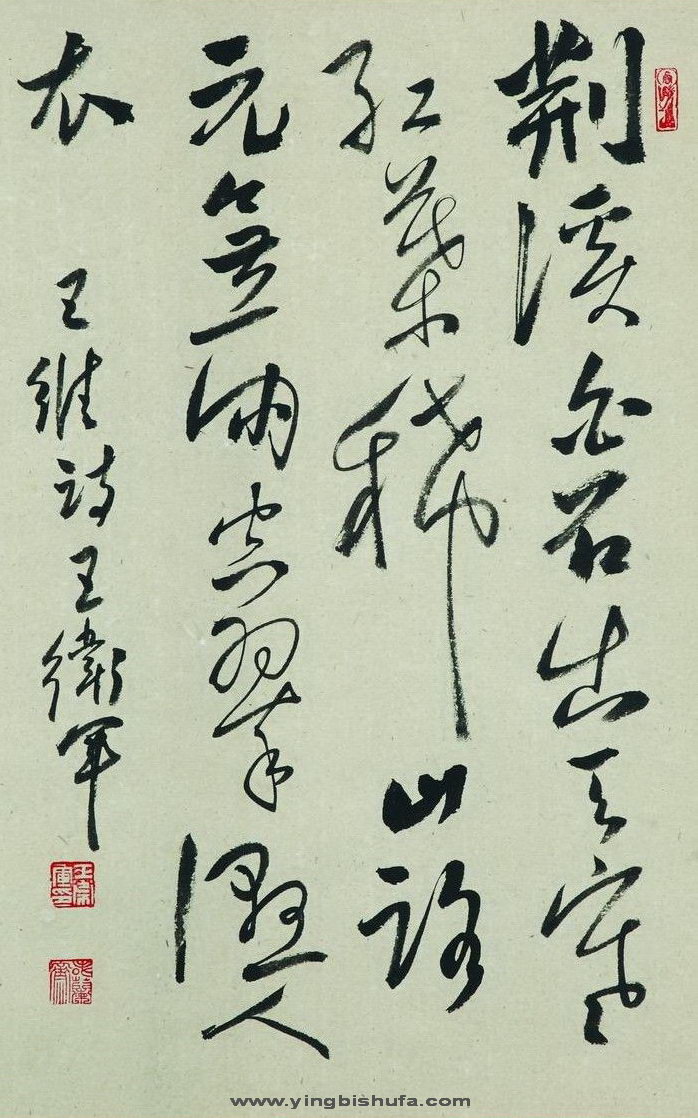 荆溪白石出天寒
紅葉稀山路
元無雨空翠濕人
衣
王維詩王衛軍
www.yingbishufa.com